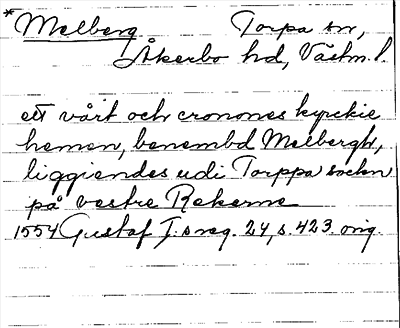 *Melberg Torpa sn,
Åkerbo hd, Västm. l.
ett vårt och cronones kyrckie
hemen, benembd Melbergh,
liggiendes udi Torppa sochn
på vestre Rekerne
1554 Gustaf I:s reg. 24, s. 423. orig.